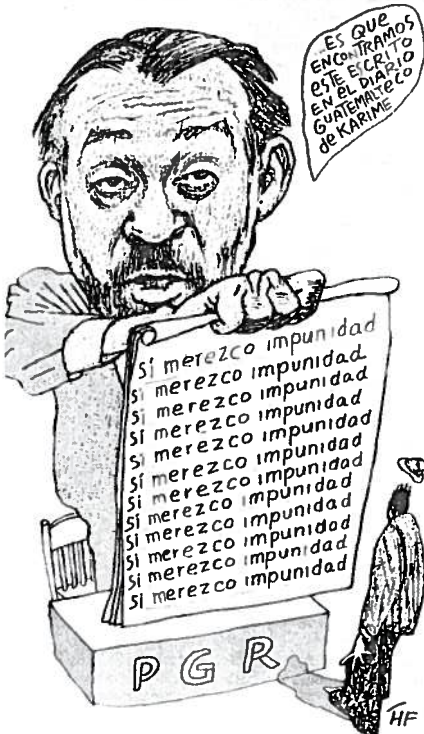 ...ES QUE
ENCONTRAMOS
ESTE ESCRITO
EN EL DIARIO
GUATEMALTECO
de KARIME
sí merezco impunidad
sí merezco impunidad
sí merezco impunidad
sí merezco impunidad
sí merezco impunidad
sí merezco impunidad
sí merezco impunidad
sí merezco impunidad
sí merezco impunidad
sí merezco impunidad
sí merezco impunidad
PGR
HF